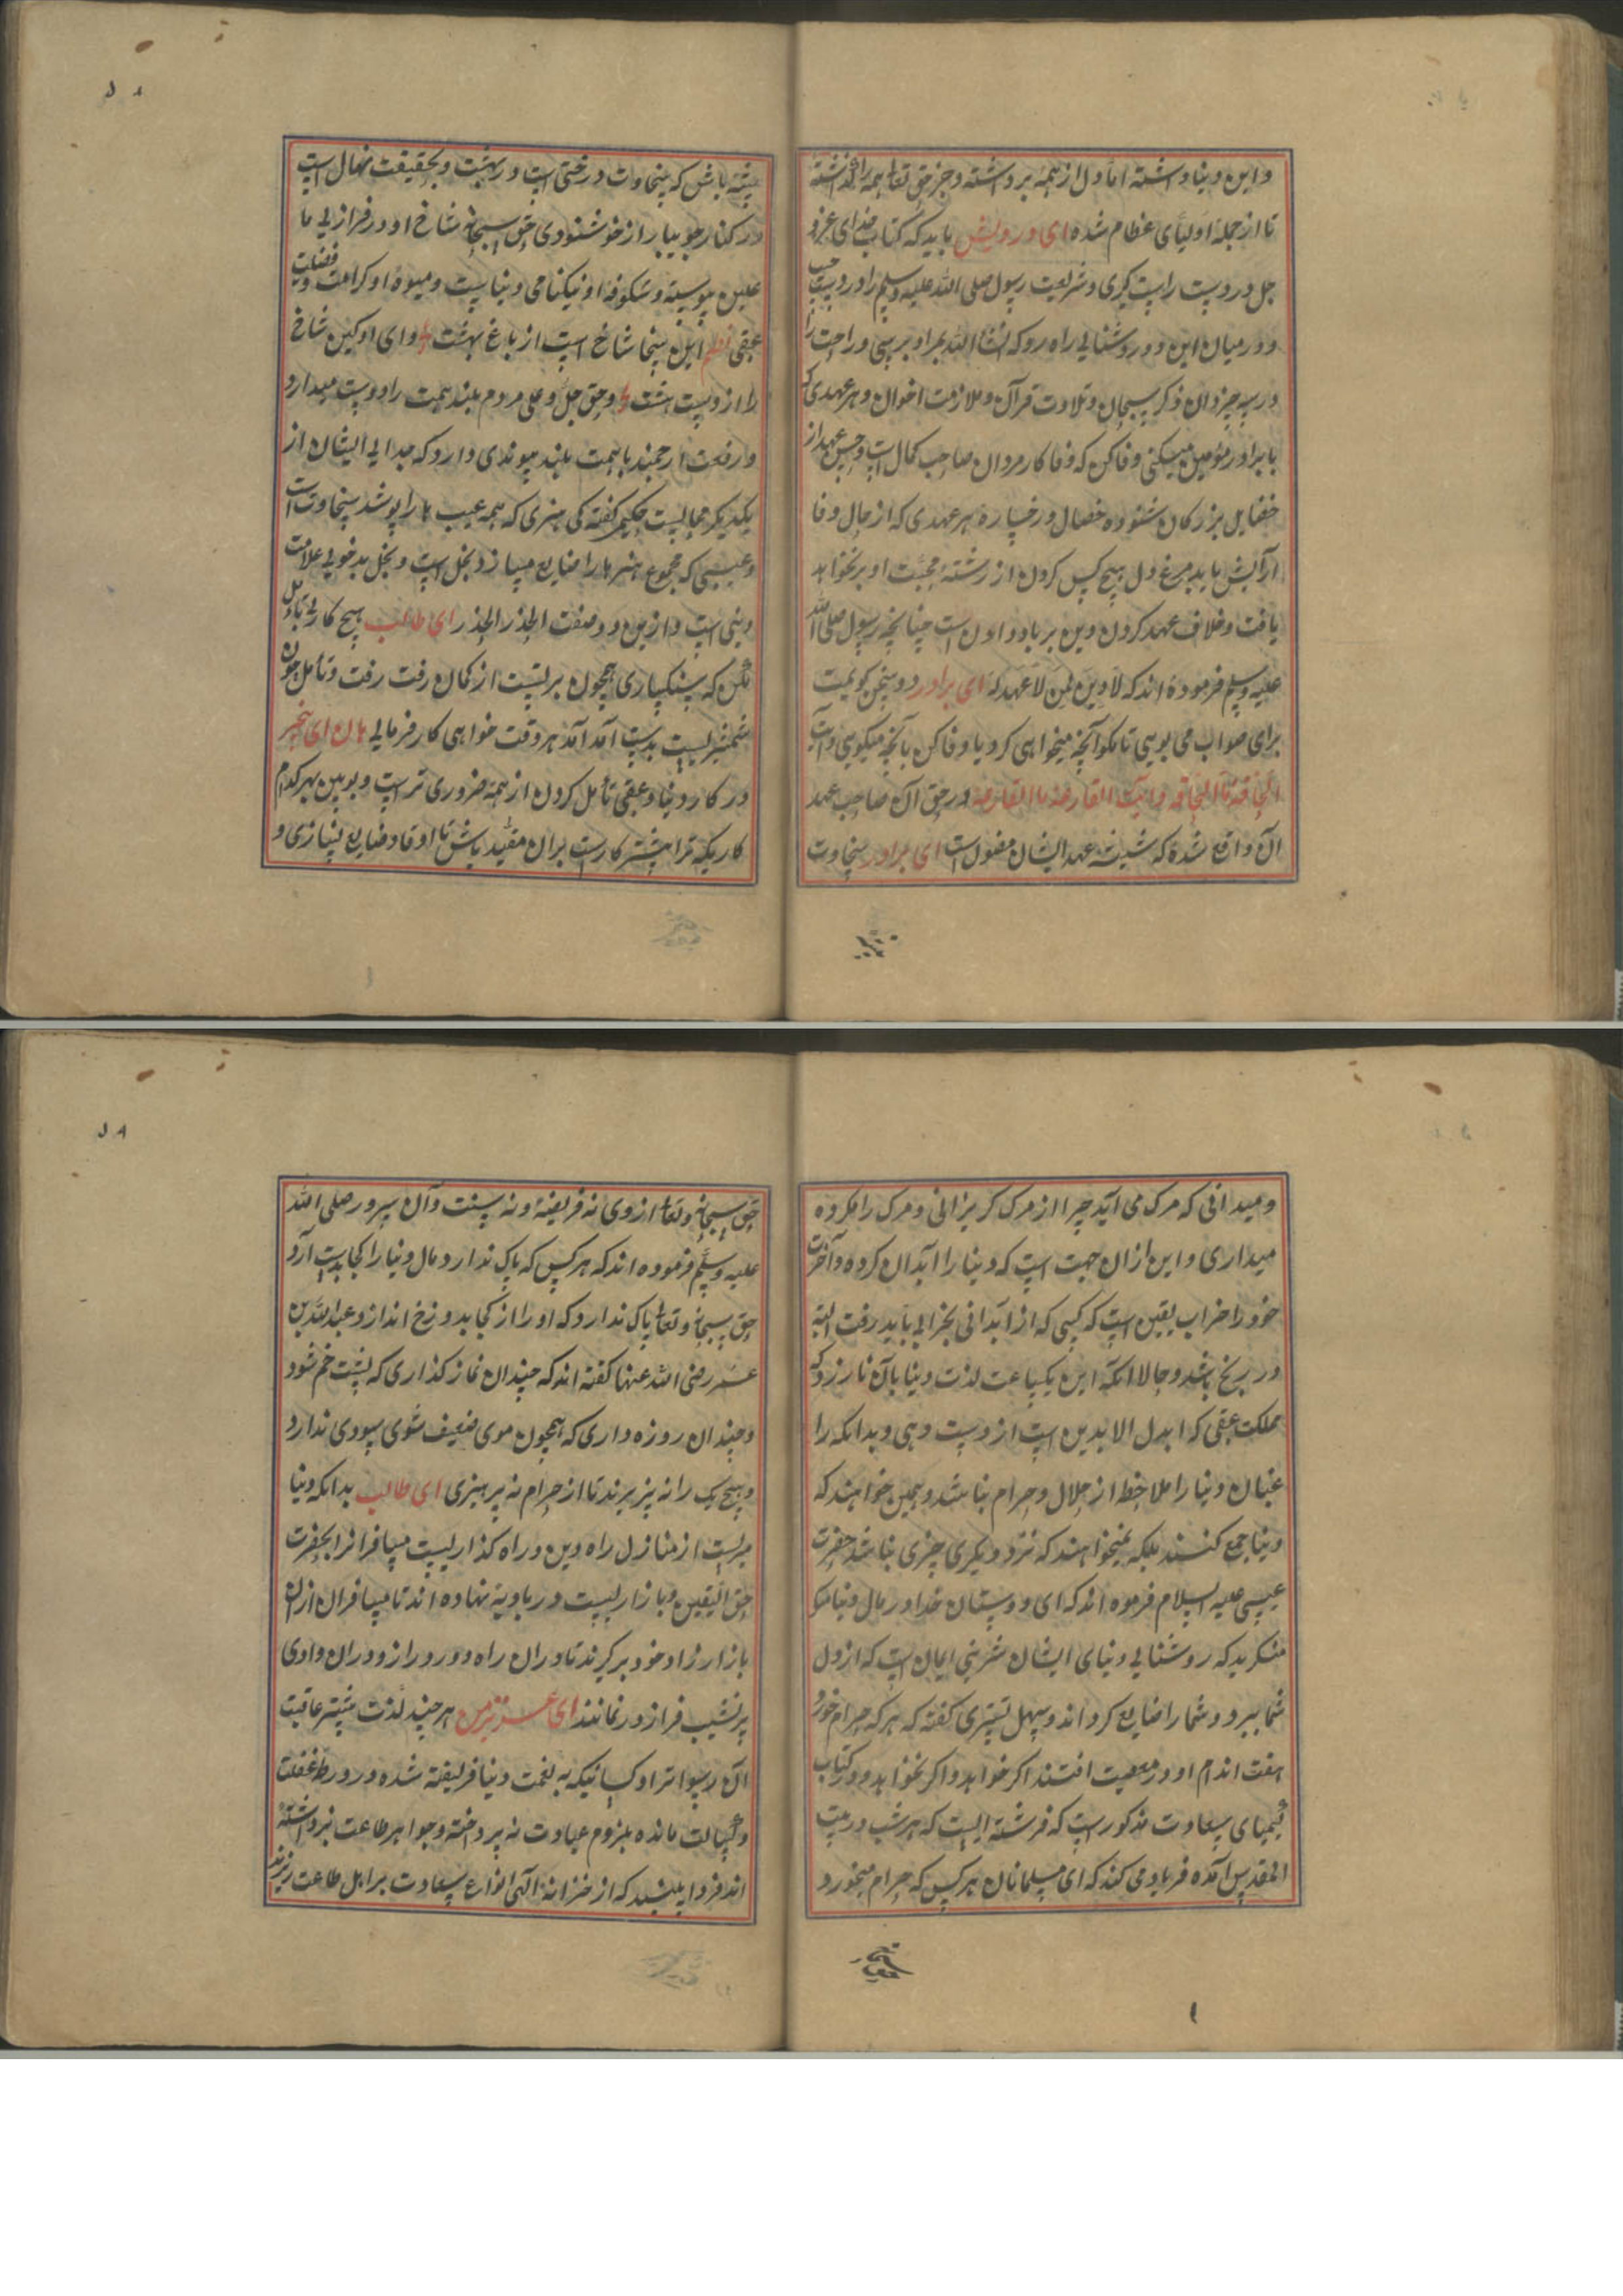 و این دنیا داشته اما دل از همه برداشته و جز حق تعا همه را گذاشته
تا از جمله اولیای عظام شده ای درویش باید که کتاب خدای عز و
جل در دست راست گیری و شریعت رسول صلی الله علیه وسلم را در دست چپ
و در میان این دو روشنایی راه رو که انشاالله بمراد برسی و راحت را
در سه چیز دان ذکر سبحان و تلاوت قرآن و ملازمت اخوان و هر عهدی که
با برادر مومن میکنی وفا کن که وفا کار مردان صاحب کمال است و حسن عهد از
خصایل بزرگان ستوده خصال و رخساره هر عهدی که از خال وفا
آرایش یابد مرغ دل هیچ کس کردن از رشته محبت او بر نخواهد
یافت و خلاف عهد کردن دین بر باد دادن است چنانچه رسول صلی الله
علیه وسلم فرموده اند که لا دین لمن لا عهد له ای برادر دو سخن گویمت
برای صواب می بویی تا مگو آنچه میخواهی کرد یا وفا کن بانچه میگویی و آیت
الحاقة ما الحاقة و آیت القارعة ما القارعة در حق آن صاحب عهد
آن واقع شده که شیشه عهد ایشان مفول است ای برادر سخاوت
پیشه باش که سخاوت درختی است در بهشت و بحقیقت نهال است
در کنار جویبار از خوشنودی حق سبحانه شاخ او در فرازیی ما
علین پیوسته و شکوفه او نیکنامی دنیاست و میوه او کرامت و فضلیت
عقبی نظم این سخا شاخ است از باغ بهشت وای او کین شاخ
را از دست هشت و حق جل و علی مردم بلند همت را دوست میدارد
و رفعت ارجمند با همت بلند پیوندی دارد که جدایی ایشان از
یکدیگر محالست حکیم گفته کی هنری که همه عیب ها را پوشد سخاوت است
و عیبی که مجموع هنر ها را ضایع میسازد بخل است و بخل بدخویی علامت
دنی است و ازین دو صفت الحذر الحذر ای طالب هیچ کار بی تأمل
مکن که سبکساری همچون برتست از کمان رفت رفت و تأمل چون
شمشریست بدست آمد آمد هر وقت خواهی کار فرمایی هان ای بیخبر
در کار دنیا و عقبی تأمل کردن از همه ضروری تر است و بوبین بهر کدام
کاریکه ترا بیشتر کارست بران مقید باش تا اوقاد ضایع نسازی و
و میدانی که مرگ می آید چرا از مرگ گریزانی و مرگ را مکروه
میداری و این ازان جهت است که دنیا را آبدان کرده و آخرت
خود را خراب یقین است که کسی که از آبدانی بخرابی باید رفت البته
در رنج باشد و حالا انکه این یکساعت لذت دنیا بآن نارزد که
مملکت عقبی که ابدل الابدین است از دست دهی و بدانکه را
غبان دنیا را ملاحظه از حلال و حرام نباشد و همین خواهند که
دنیا جمع کنند بلکه نمیخواهند که نزد دیگری چیزی نباشد حضرت
عیسی علیه السلام فرموه اند که ای دوستان خدا در مال دنیا
منگرید که روشنایی دنیای ایشان شرینی ایمان است که از دل
شما ببرد و شما را ضایع کرداند و سهل تستری گفته که هر که حرام خورد
هفت اندام او در معصیت افتند اگر خواهد و اگر نخواهد و در کتاب
کیمیای سعادت مذکورست که فرشته ایست که هر شب در بیت
المقدس آمده فریاد می کند که ای مسلمانان هر کس که حرام میخورد
حق سبحانه و تعا از وی نه فریضه و نه سنت و آن سرور صلی الله
علیه وسلم فرموده اند که هر کس که باک ندارد مال دنیا را کجا بدست آرد
حق سبحانه و تعا باک ندارد که او را از کجا بدوزخ اندازد عبدالله بن
عمر رضی الله عنهما گفته اند که چندان نماز گذاری که پشت خم شود
و چندان روزه داری که همچون موی ضعیف شوی سودی ندارد
و هیچ یک را نه پزیرند تا از حرام نه پرهیزی ای طالب بدانکه دنیا
سرایست از منازل راه دین و راه گذاریست مسافرانرا بحضرت
حق الیقین و بازاریست در بادیه نهاده اند تا مسافران ازان
بازار زاد خود برگیرند تا دران راه دور و دراز و دران وادی
پر نشیب فراز در نمانند ای عزیز من هر چند لذت بیشتر عاقبت
آن رسواتر او کسانیکه به نعمت دنیا فریفته شده و در ورطه غفلت
و کسالت مانده بلزوم عبادت نه پرداخته و جواهر طاعت نبرداشته
اند فردا باشد که از خزانه الهی انواع سعادت بر اهل طاعت ریزند